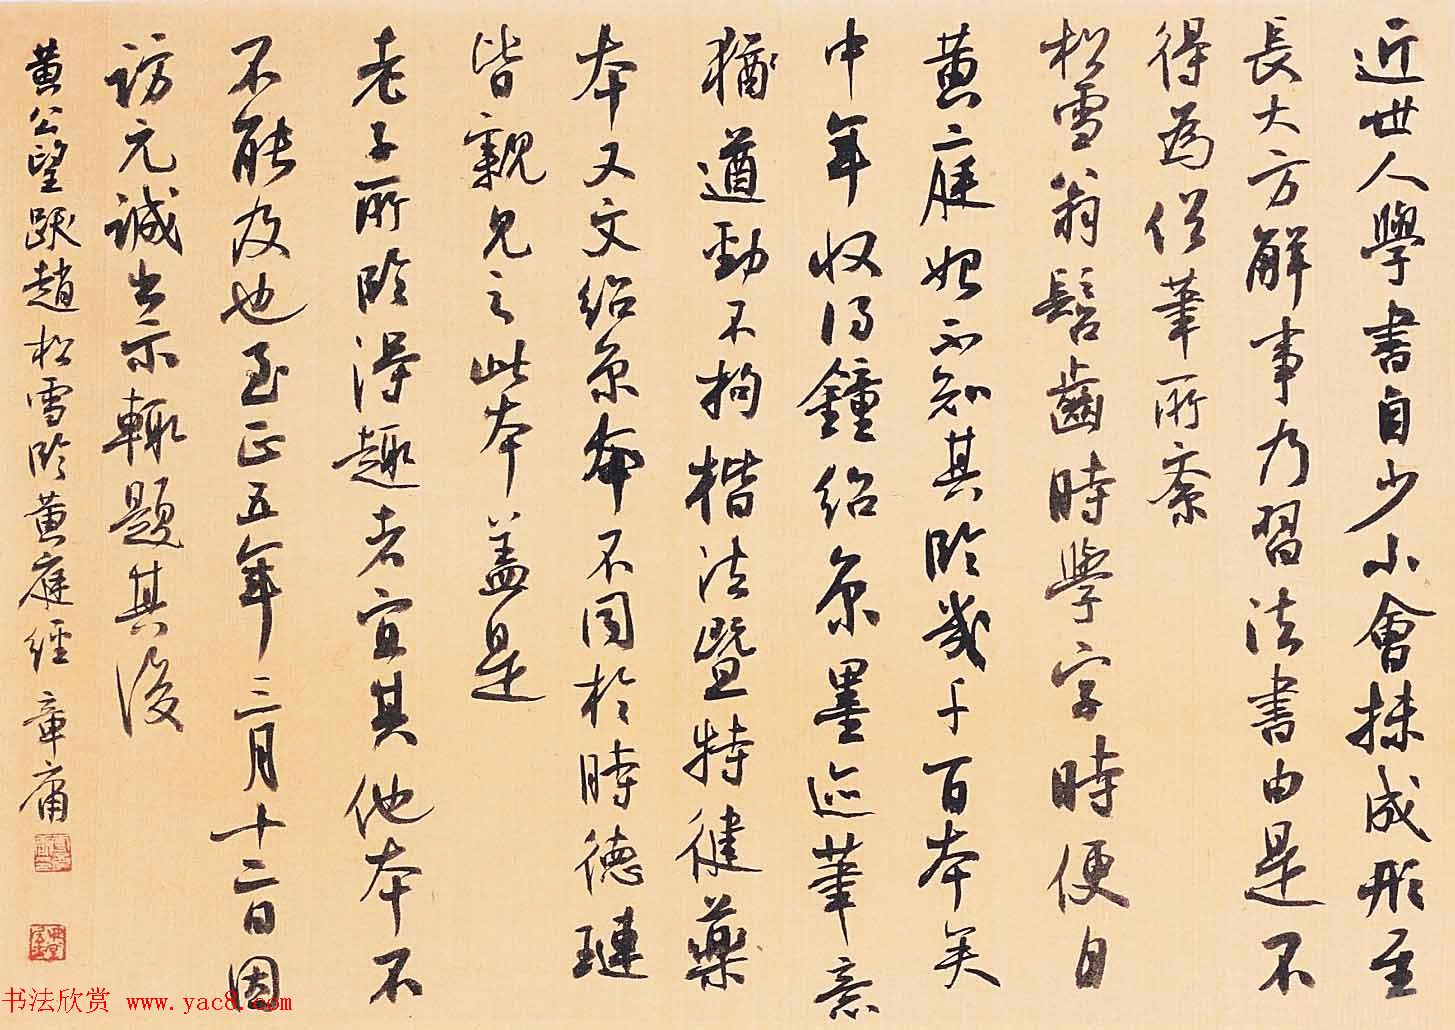 近世人學書自少小會抹成形至
長大方解事乃習法書由是不
得為俗筆所紊
松雪翁髫齒時學字時便自
黃庭始不知其臨幾千百本矣
中年收得鐘紹京墨迹筆意
猶遒勁不拘楷法暨特健藥
本又文紹京本不同於時德璉
皆親見之此本蓋是
老子所臨得趣者宜其他本不
不能及也至正五年三月十二日因
訪元誠出示輒題其後
黃公望跋趙松雪臨黃庭經 章庸
书法欣赏 www.yac8.com